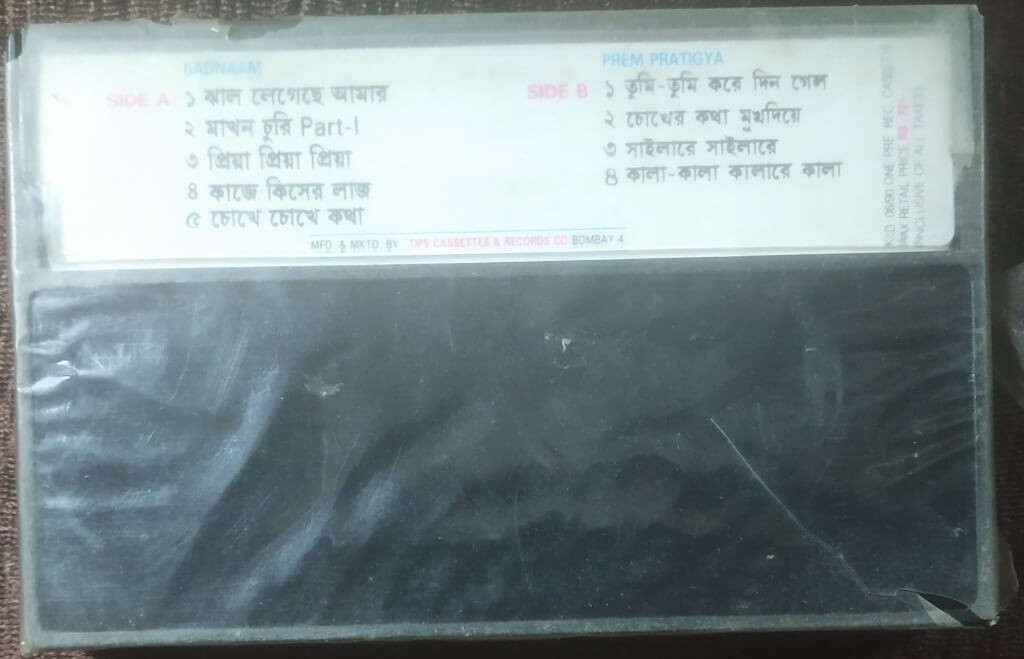 BADNAAM
SIDE A
১ ঝাল লেগেছে আমার
২ মাখন চুরি Part-I
৩ প্রিয়া প্রিয়া প্রিয়া
৪ কাজে কিসের লাজ
৫ চোখে চোখে কথা
PREM PRATIGYA
SIDE B
১ তুমি-তুমি করে দিন গেল
২ চোখের কথা মুখদিয়ে
৩ সাইলারে সাইলারে
৪ কালা-কালা কালারে কালা
MFD. & MKTD. BY TIPS CASSETTES & RECORDS CO BOMBAY-4
PKD. 06/90 ONE PRE REC CASSETTE
MAX RETAIL PRICE RS.
INCLUSIVE OF ALL TAXES